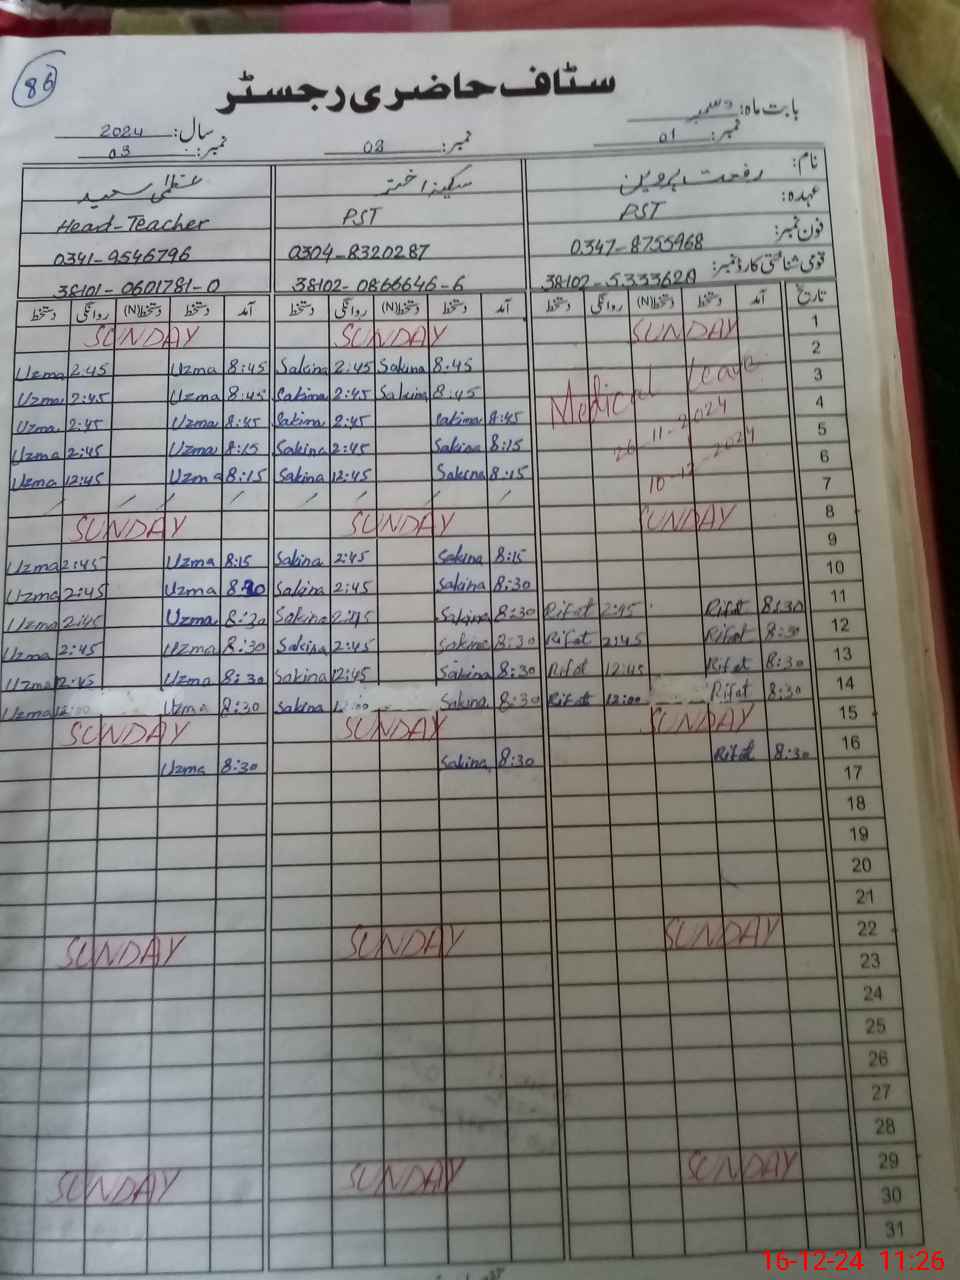 86
سٹاف حاضری رجسٹر
بابت ماہ: دسمبر
سال: 2024
نمبر: 01 نمبر: 02 نمبر: 03
نام: رفعت پروین سکینہ اختر عظمیٰ سعید
عہدہ: PST PST Head-Teacher
فون نمبر: 0347-8755968 0304-8320287 0341-9546796
قومی شناختی کارڈ نمبر: 38102-5333620 38102-0866646-6 38101-0601781-0
تاریخ آمد دستخط دستخط(N) روانگی دستخط آمد دستخط دستخط(N) روانگی دستخط آمد دستخط دستخط(N) روانگی دستخط
SUNDAY SUNDAY SUNDAY 1
Uzma 2:45 Uzma 8:45 Sakina 2:45 Sakina 8:45 2
Uzma 2:45 Uzma 8:45 Sakina 2:45 Sakina 8:45 Medical Leave 3
Uzma 2:45 Uzma 8:45 Sakina 2:45 Sakina 8:45 26-11-2024 4
Uzma 2:45 Uzma 8:15 Sakina 2:45 Sakina 8:15 5
Uzma 12:45 Uzma 8:15 Sakina 12:45 Sakina 8:15 10-12-2024 6
7
SUNDAY SUNDAY SUNDAY 8
Uzma 2:45 Uzma 8:15 Sakina 2:45 Sakina 8:15 9
Uzma 2:45 Uzma 8:30 Sakina 2:45 Sakina 8:30 10
Uzma 2:45 Uzma 8:30 Sakina 2:45 Sakina 8:30 Rifat 2:45 Rifat 8:30 11
Uzma 2:45 Uzma 8:30 Sakina 2:45 Sakina 8:30 Rifat 2:45 Rifat 8:30 12
Uzma 12:45 Uzma 8:30 Sakina 12:45 Sakina 8:30 Rifat 12:45 Rifat 8:30 13
Uzma 12:00 Uzma 8:30 Sakina 12:00 Sakina 8:30 Rifat 12:00 Rifat 8:30 14
SUNDAY SUNDAY SUNDAY 15
Uzma 8:30 Sakina 8:30 Rifat 8:30 16
17
18
19
20
21
SUNDAY SUNDAY SUNDAY 22
23
24
25
26
27
28
SUNDAY SUNDAY SUNDAY 29
30
31
16-12-24 11:26